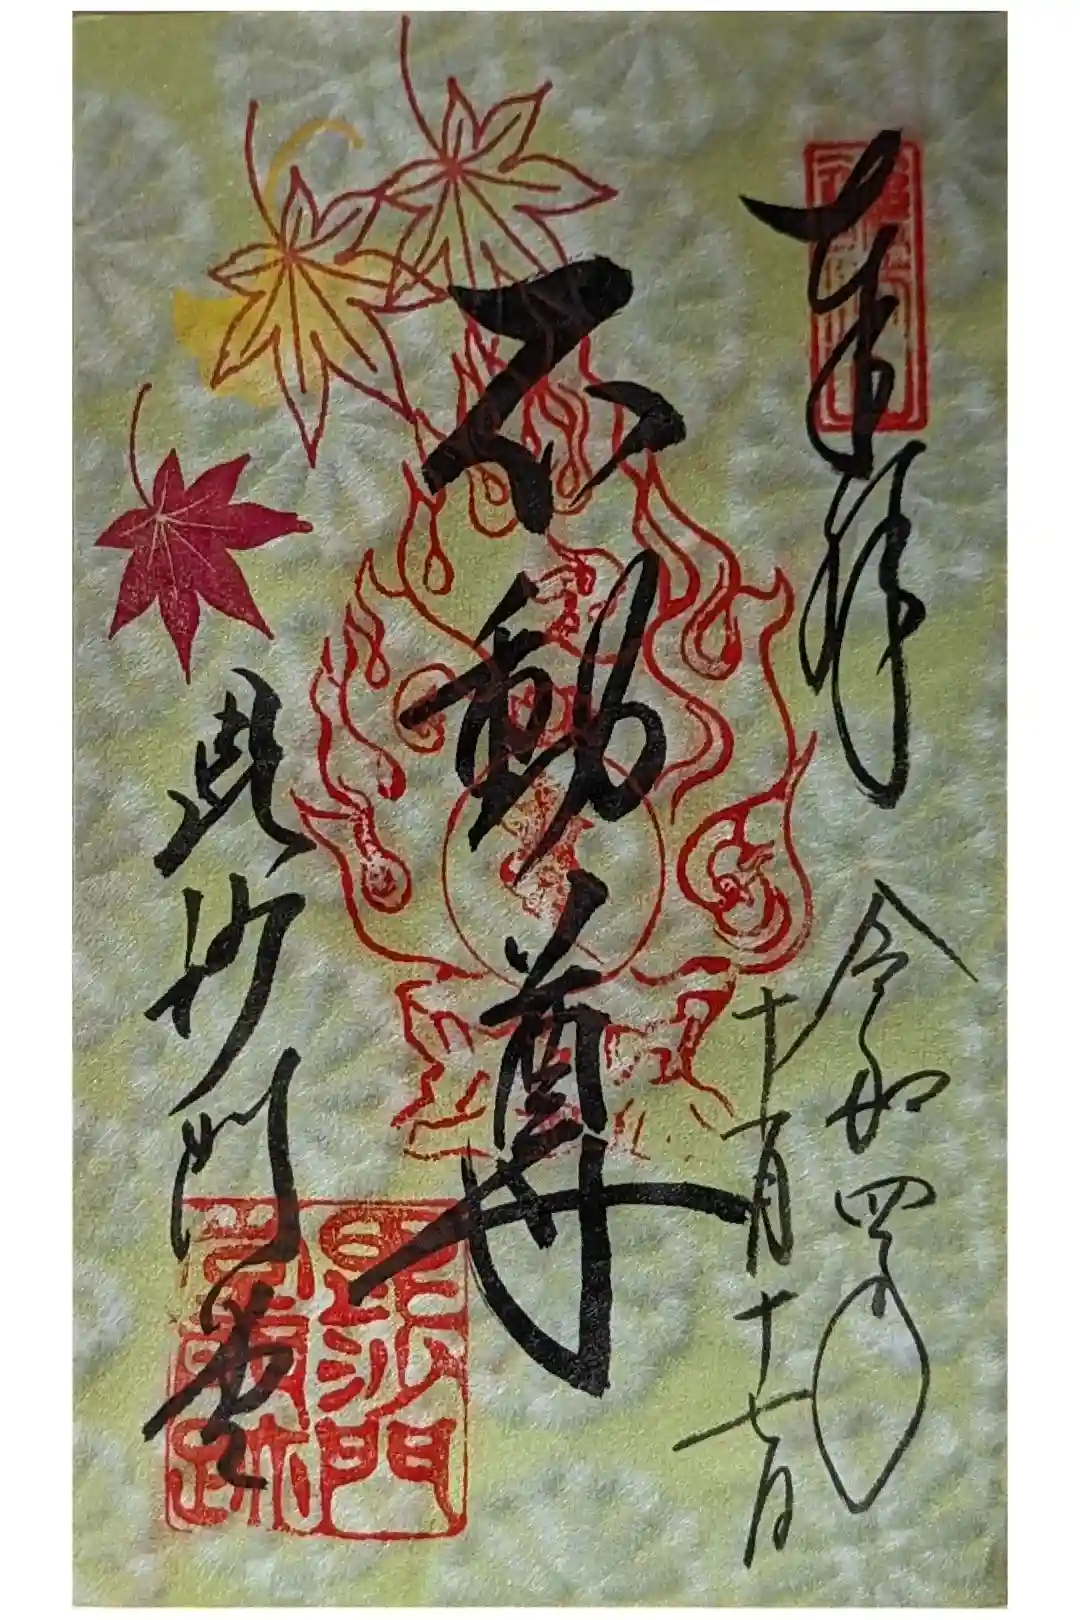 奉拝
令和四年
十一月十七日
不動尊
毘沙門堂
毘沙門
堂門跡